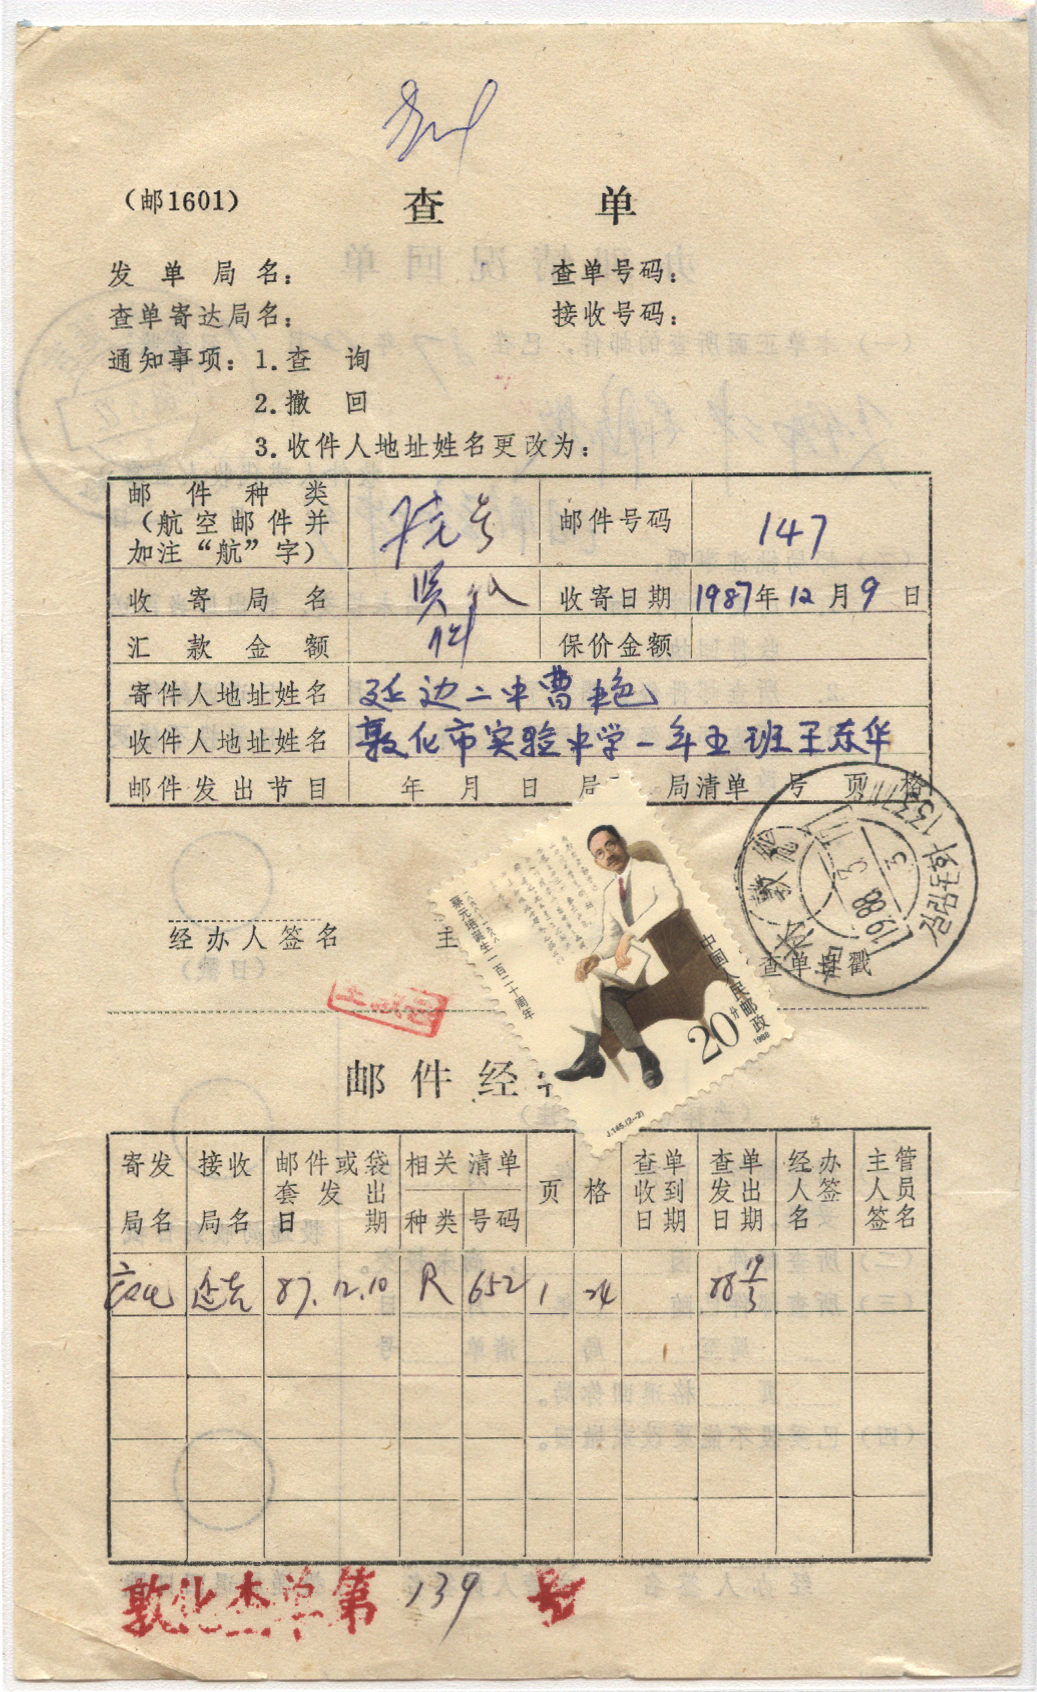 （邮1601）
查 单
发单局名： 查单号码：
查单寄达局名： 接收号码：
通知事项：1.查 询
2.撤 回
3.收件人地址姓名更改为：
邮件种类（航空邮件并加注“航”字） 邮件号码 147
收寄局名 收寄日期 1987年12月9日
汇款金额 保价金额
寄件人地址姓名 延边二中曹艳
收件人地址姓名 敦化市实验中学一年五班王东华
邮件发出节目 年 月 日 局 局清单 号 页 格
经办人签名 主
查单 戳
吉林 敦化
1988.3.3
길림돈화
1337
蔡元培诞生一百二十周年
一八六八——一九八八
中国人民邮政
20分
1988
J.145.(2-2)
邮件经
寄发局名 接收局名 邮件或袋套发出日期 相关清单 种类 号码 页 格 查单收到日期 查单发出日期 经办人签名 主管人员签名
87.12.10 R 652 1 24 88
敦化查单第 139 号